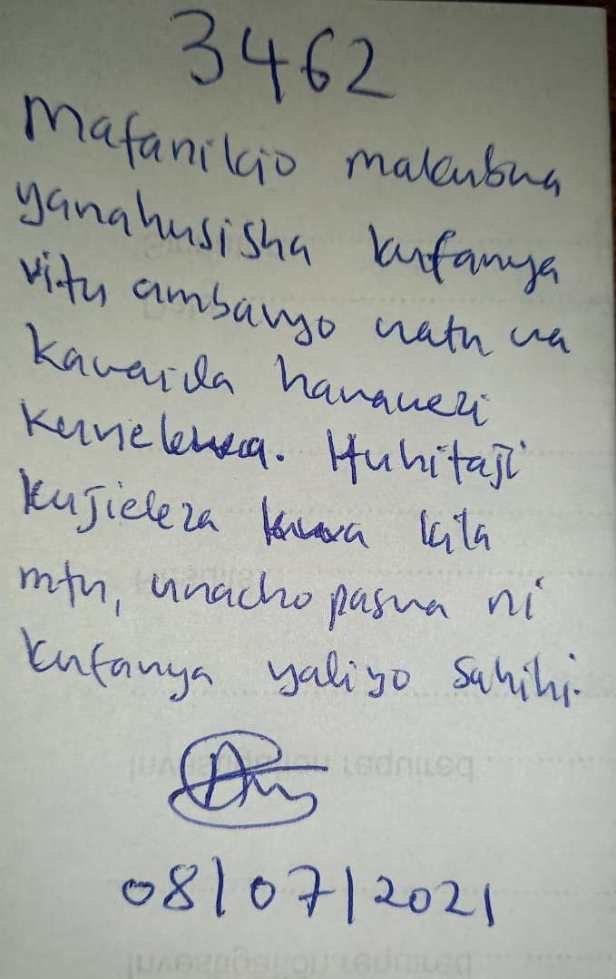 3462
Mafanikio makubwa
yanahusisha kufanya
vitu ambavyo watu wa
kawaida hawawezi
kuvielewa. Huhitaji
kujieleza kwa kila
mtu, unacho paswa ni
kufanya yaliyo sahihi.
08/07/2021